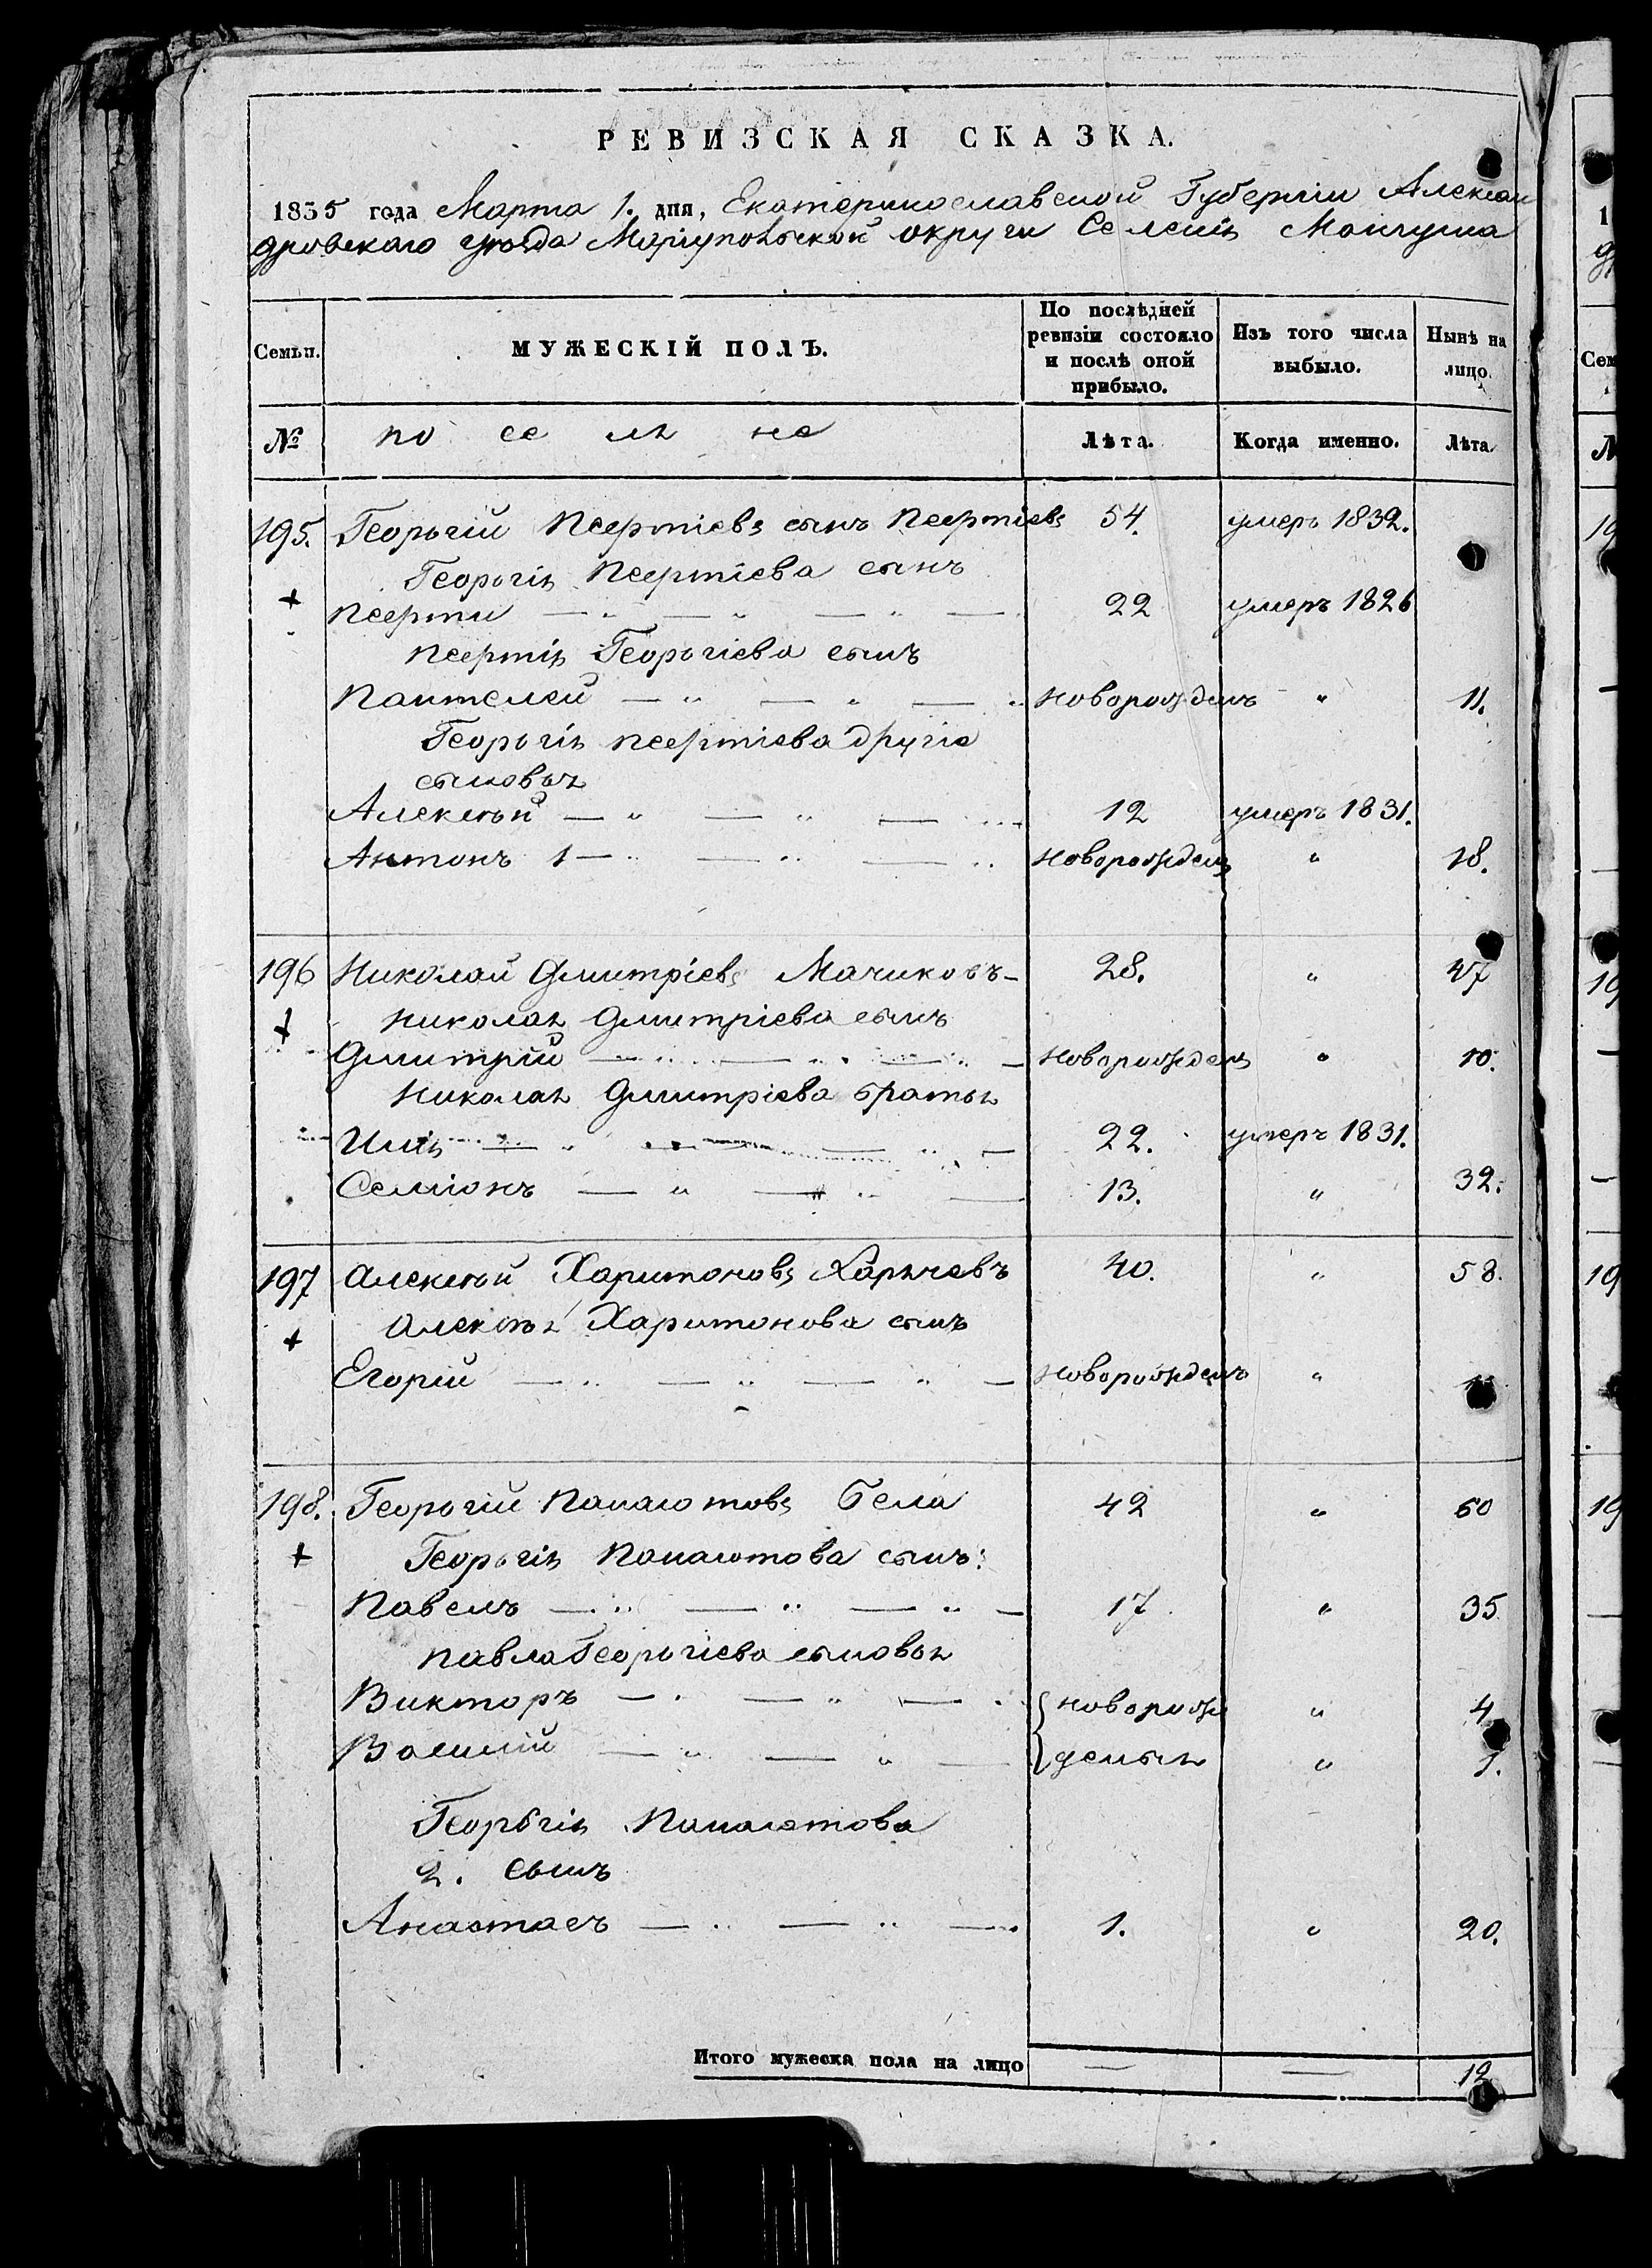 РЕВИЗСКАЯ СКАЗКА.
1835 года Марта 1. дня, Екатеринославской Губерніи Алексан
дровскаго уѣзда Маріупольской округи Селенія Мангуша
Семьи. МУЖЕСКІЙ ПОЛЪ. По послѣдней ревизіи состояло и послѣ оной прибыло. Изъ того числа выбыло. Нынѣ на лицо.
№ поселяне Лѣта. Когда именно. Лѣта.
195. Георьгій Псертіевъ сынъ Псертіевъ 54. умеръ 1832.
Георьгія Псертіева сынъ
Псерти — " — " — " — 22 умеръ 1826
Псертія Георьгіева сынъ
Пантелей — " — " — " новорожденъ " 11.
Георьгія Псертіева другіе
сыновья
Алексѣй — " — " — " 12 умеръ 1831.
Антонъ 1 — " — " — " новорожденъ " 18.
196 Николай Дмитріевъ Мачиковъ — 28. " 47
Николая Дмитріева сынъ
Дмитрій — " — " — " — новорожденъ " 10.
Николая Дмитріева братья
Илія — " — " — " — 22. умеръ 1831.
Семіонъ — " — " — 13. " 32.
197 Алексѣй Харитоновъ Харычевъ 40. " 58.
Алексѣя Харитонова сынъ
Егорій — " — " — " — новорожденъ "
198. Георьгій Панаіотовъ Бела 42 " 60
Георьгія Панаіотова сынъ:
Павелъ — " — " — " — 17. " 35
Павла Георьгіева сыновья
Викторъ — " — " — " новорож " 4
Василій — " — " — денья " 1.
Георьгія Панаіотова
2. сынъ
Анастасъ — " — " — " 1. " 20.
Итого мужеска пола на лицо — — 12